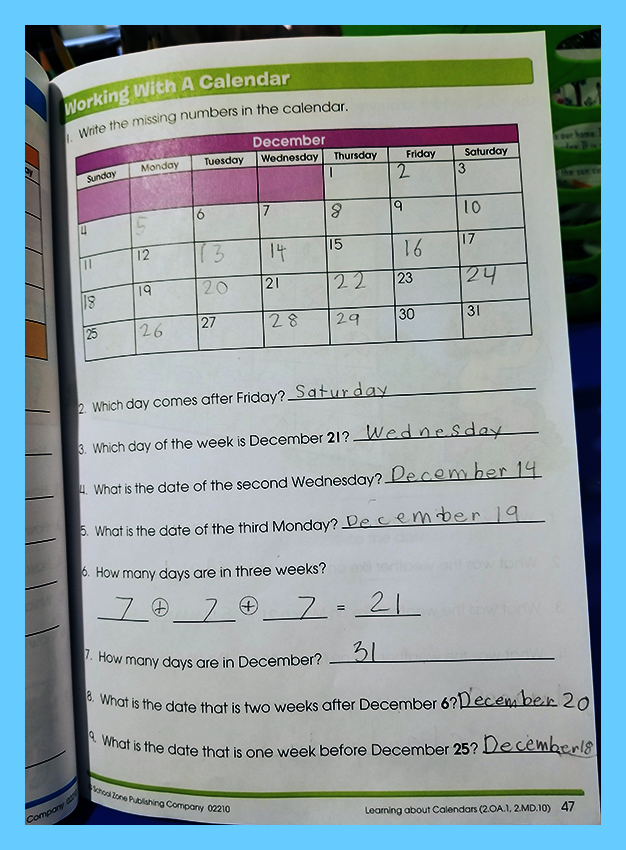 Working With A Calendar
1. Write the missing numbers in the calendar.
December
Sunday Monday Tuesday Wednesday Thursday Friday Saturday
1 2 3
4 5 6 7 8 9 10
11 12 13 14 15 16 17
18 19 20 21 22 23 24
25 26 27 28 29 30 31
2. Which day comes after Friday? Saturday
3. Which day of the week is December 21? Wednesday
4. What is the date of the second Wednesday? December 14
5. What is the date of the third Monday? December 19
6. How many days are in three weeks?
7 + 7 + 7 = 21
7. How many days are in December? 31
8. What is the date that is two weeks after December 6? December 20
9. What is the date that is one week before December 25? December 18
School Zone Publishing Company 02210
Learning about Calendars (2.OA.1, 2.MD.10) 47
Company